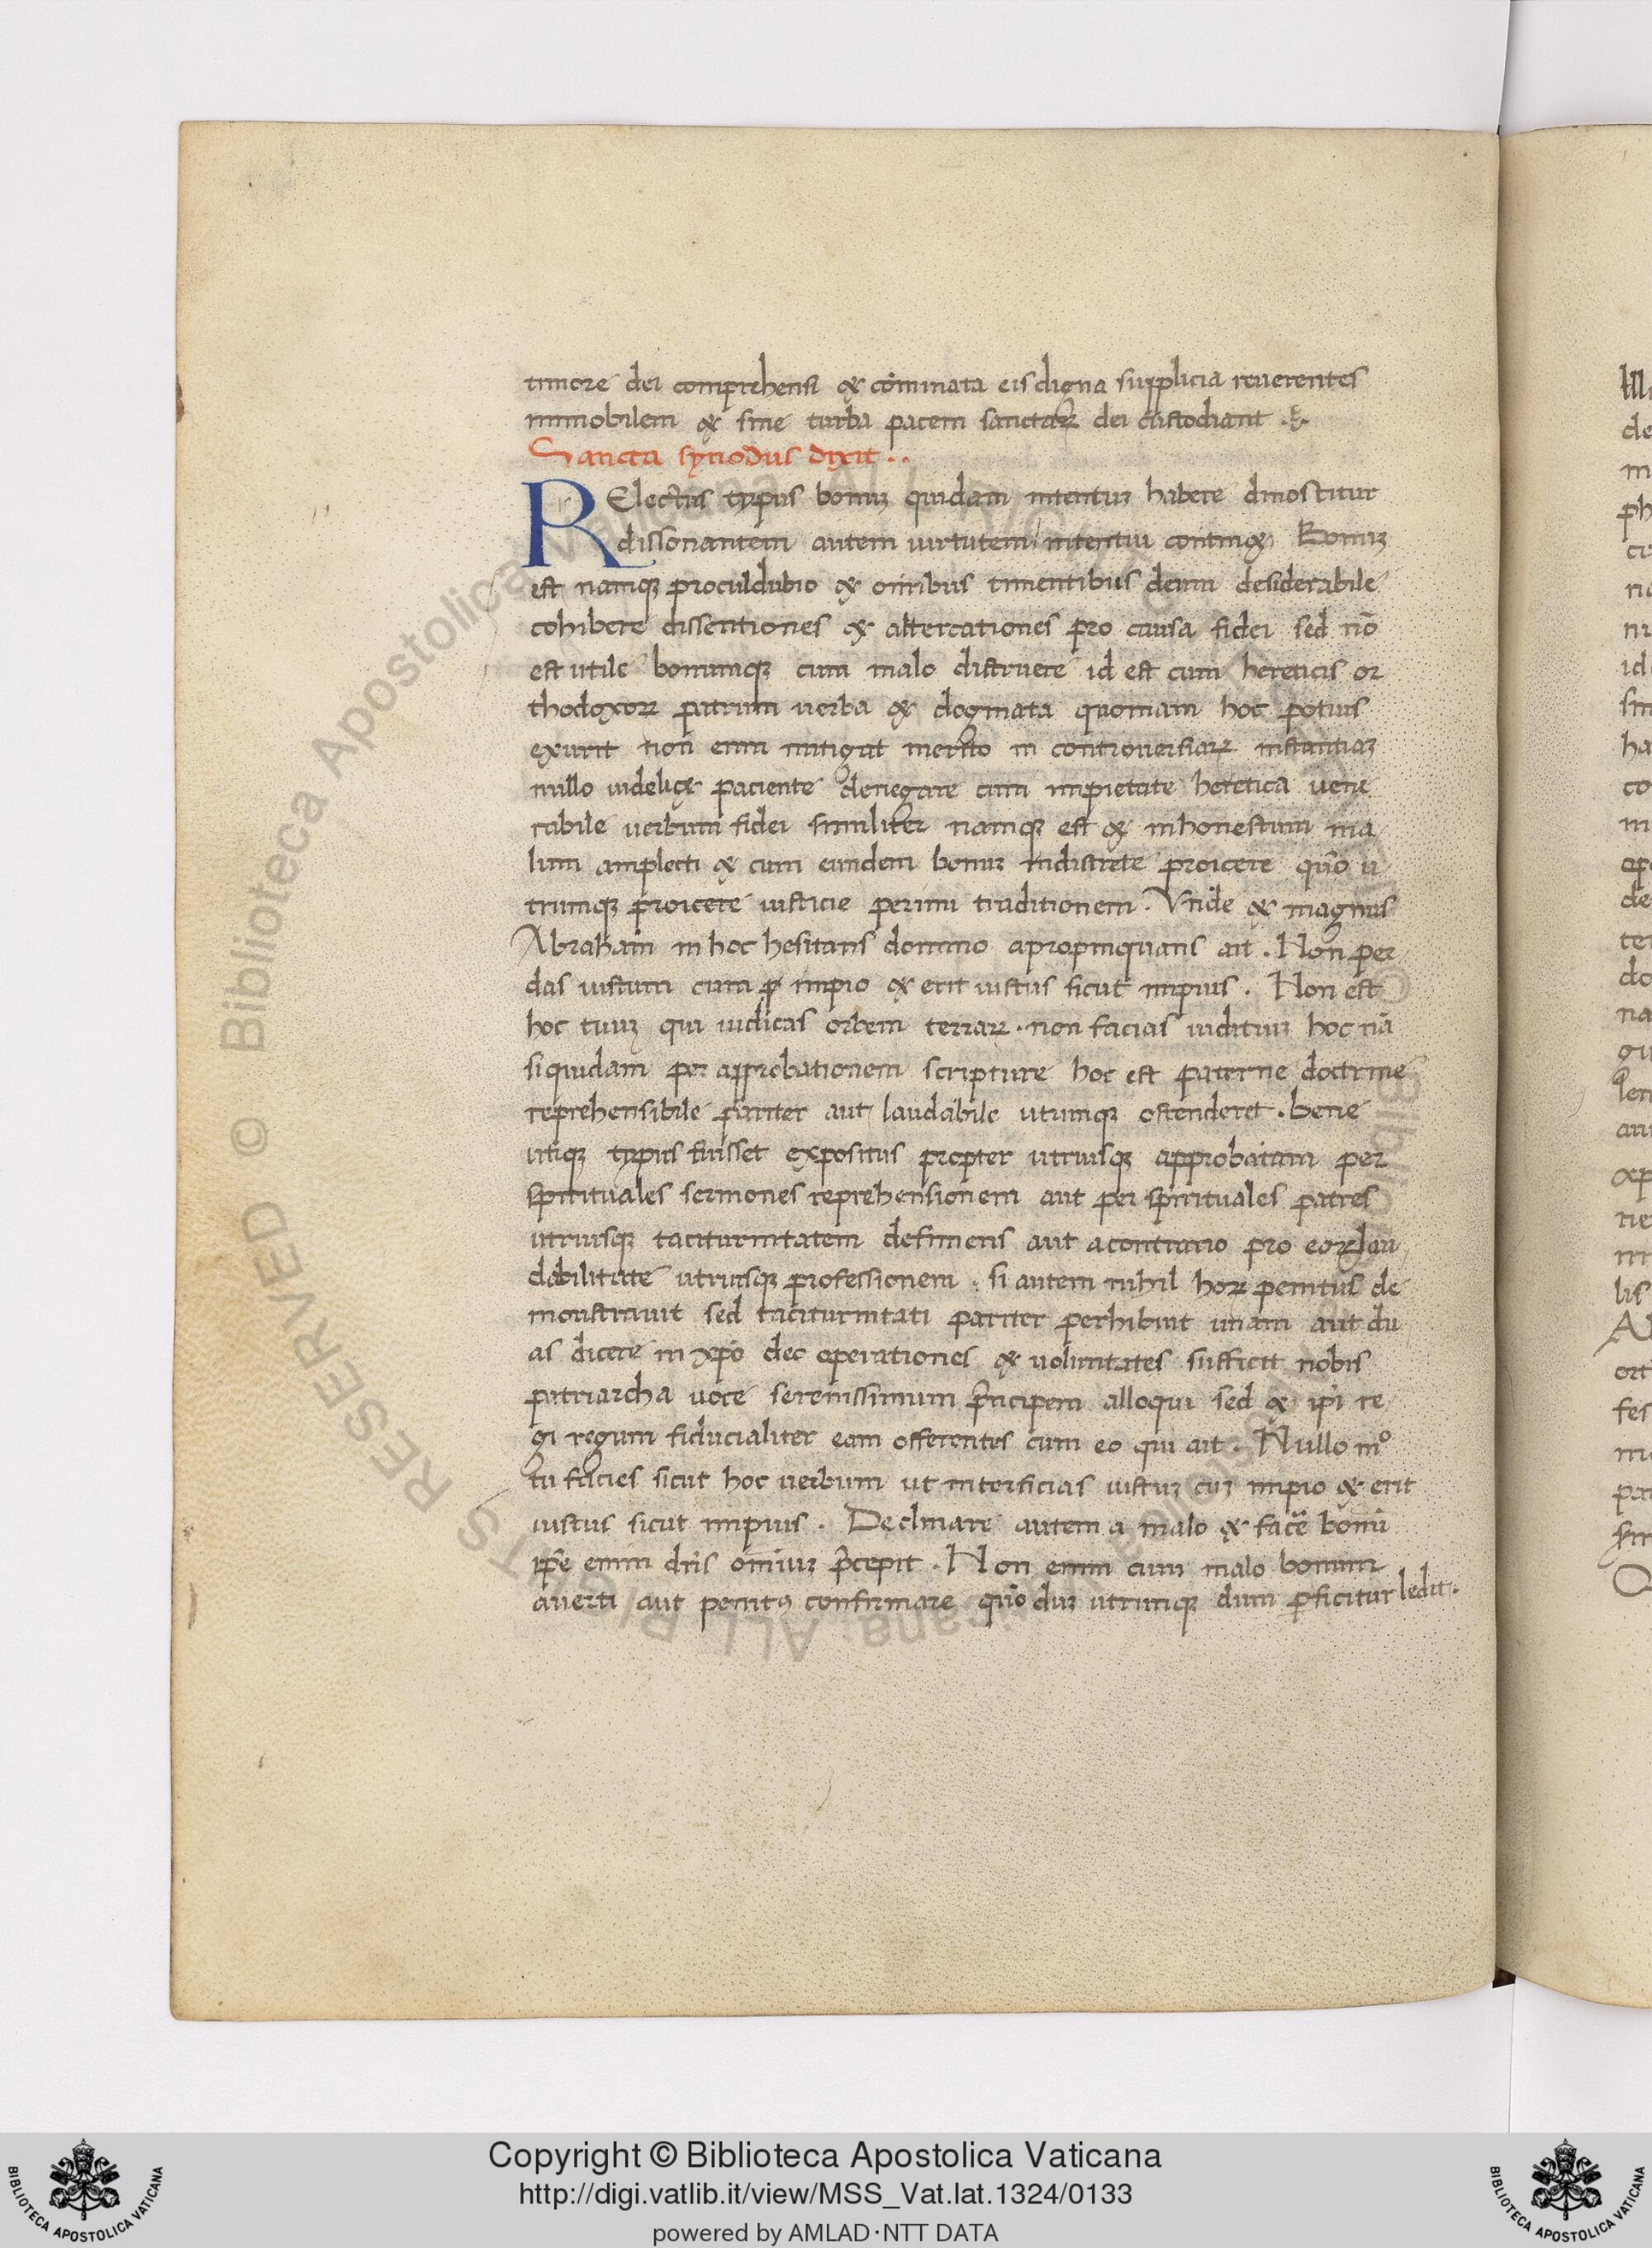 timore dei comprehensi & cominata eis digna supplicia reuerentes
immobilem & sine turba pacem sanctaꝝ dei custodiant
Sancta synodus dixit..
RElectus typus bonuꝫ quidam intentuꝫ habere dinoscitur
dissonantem autem uirtutem intentui contin& Bonuꝫ
est namqꝫ proculdubio & omibus timentibus deum desiderabile
cohibere dissentiones & altercationes pro causa fidei sed nō
est utile bonumqꝫ cum malo distruere id est cum hereticis or
thodoxoꝝ patrum uerba & dogmata quoniam hoc potius
exurit non enim mitigat merito in controuersiaꝝ instantiaꝫ
nullo uidelic& paciente denegare cum impietate heretica uene
rabile uerbum fidei similiter namqꝫ est & inhonestum ma
lum amplecti & cum eiusdem bonuꝫ indiscrete proicere quō u
trumqꝫ proicere iusticie perimi traditionem. Vnde & magnus
Abraham in hoc hesitans domino apropinquans ait. Non per
das iustum cum impio & erit iustus sicut impius. Non est
hoc tuuꝫ qui iudicas orbem terraꝝ. non facias iudituiꝫ hoc nā
si quidam per approbationem scripture hoc est paterne doctrine
reprehensibile pariter aut laudabile utumqꝫ ostenderet. bene
utiqꝫ typus fuisset expositus propter utriusqꝫ approbatam per
spirituales sermones reprehensionem aut per spirituales patres
utriusqꝫ taciturnitatem definiens aut acontrario pro eoꝝ lau
dabilitate utriusqꝫ professionem. si autem nihil hoꝝ penitus de
monstrauit sed taciturnitati pariter perhibuit unam aut du
as dicere in xpō dec operationes & uoluntates sufficit nobis
patriarcha uoce serenissimum p̄ncipem alloqui sed & ip̄i re
gi regum fiducialiter eam offerentes cum eo qui ait. Nullo mº
tu facies sicut hoc uerbum ut interficias iustuꝫ cuꝫ impio & erit
iustus sicut impius. Declinare autem a malo & facē bonū
ip̄e enim dn̄s omniuꝫ p̄cepit. Non enim cum malo bonum
auerti aut penitꝰ confirmare quō duꝫ utrumqꝫ dum ꝑficitur ledit.
Copyright © Biblioteca Apostolica Vaticana
http://digi.vatlib.it/view/MSS_Vat.lat.1324/0133
powered by AMLAD·NTT DATA